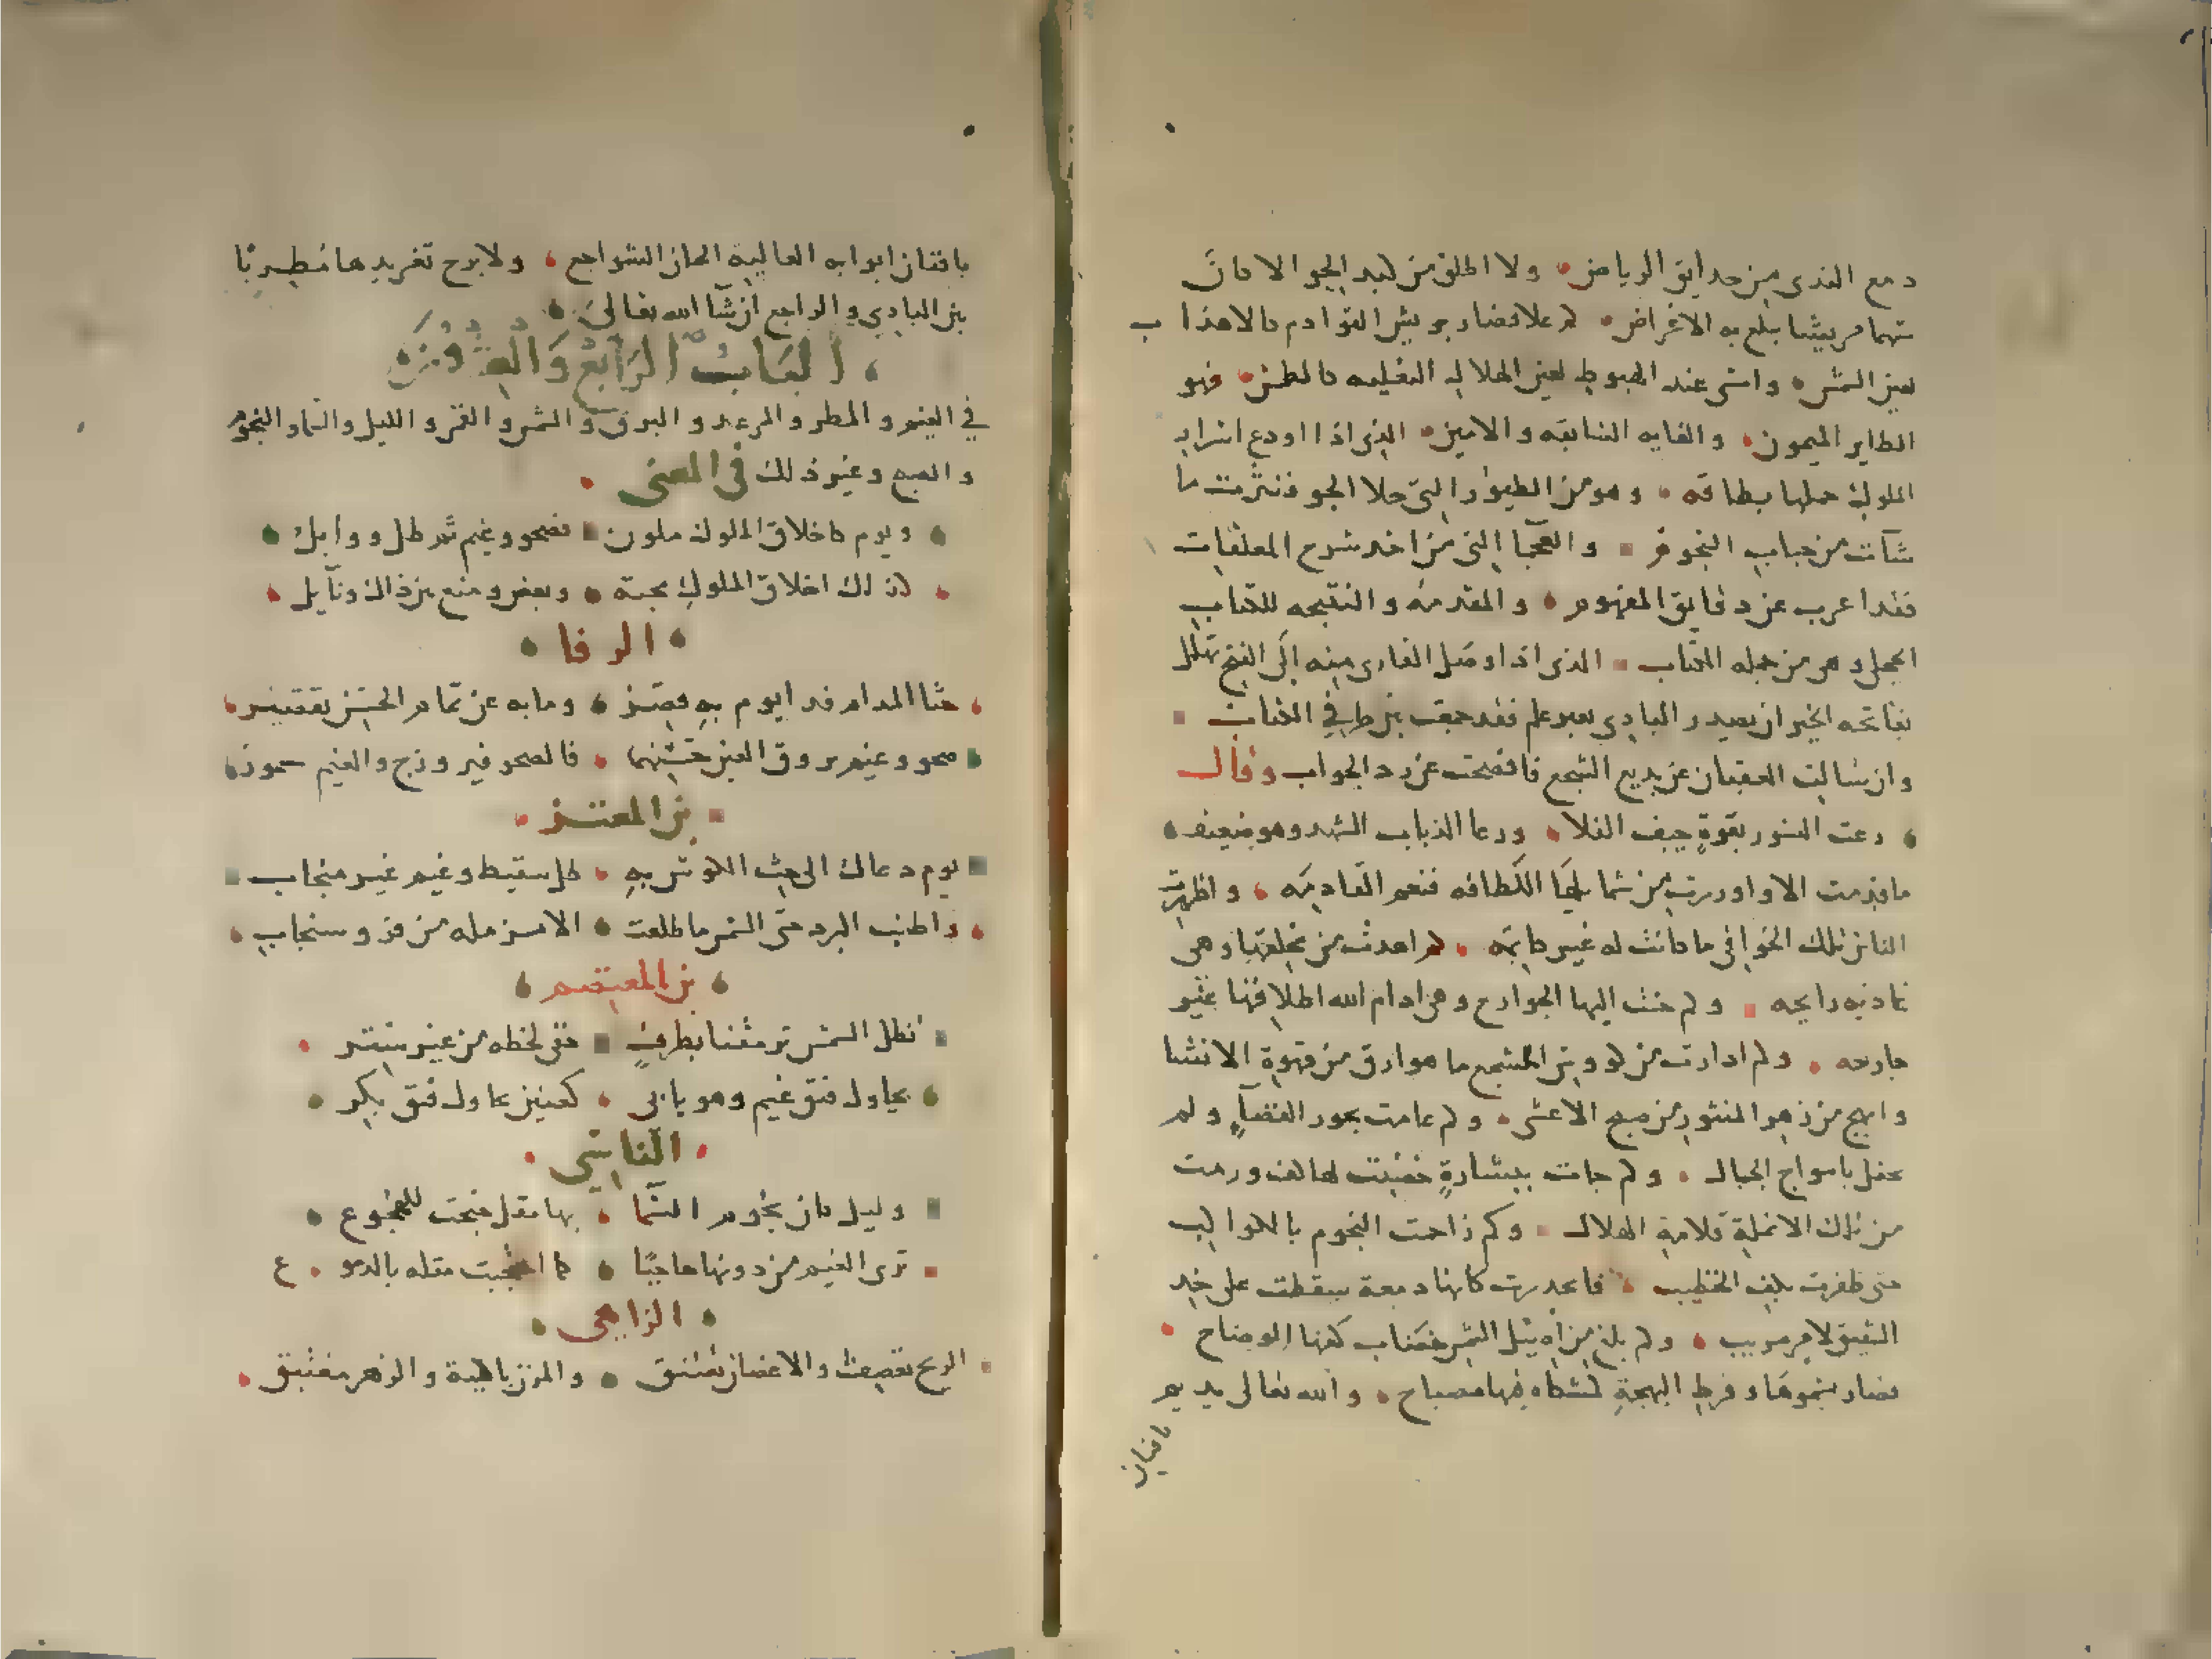 دمع الندى من حدايق الرياض ولا اطلق من كبد الجو الا كان
سهما مريشا بلغ به الاغراض كم علا فصار بريش القوادم كالاهداب
لعين الشمس وامسى عند الهبوط لعين الهلال النعليه كالطمس فهو
الطاير الميمون والغايه السابقه والامين الذي اذا اودع اسرار
الملوك حملها بطاقه وهو من الطيور التي خلا الجو فنقرت ما
شآت من حباب النجوم والعجما التي من اخد شرح المعلقات
فقد اعرب عن دقايق المفهوم والمقدمة والنتيجه للكتاب
الحجلى وهي من جمله الكتاب الذي اذا وصل القارى منه الى الفتح تهلل
بفاتحه الخير ان يصدر البادي بغير علم فقد جمعت بين طي الكتاب
وان سالت العقبان عن بديع السجع فافصحت عن رد الجواب وقالـ
رعت النسور بقوة جيف الفلا ورعا الذباب الشهد وهو ضعيف
ما قدمت الا واورت من شمايلها اللطافه فنعم القادمه واظهرت
الناس تلك الخوافى ما كانت له غير كاتمه كم اهدت من مخلقها وهي
غاديه رايحه وكم حنت اليها الجوارح وهي ادام الله اطلاقها غير
جارحه وكم ادارت من كووس السجع ما هو ارق من قهوة الانشا
وابهج من زهر المنثور من صبح الاعشى وكم عامت بحور الفضآ ولم
تحفل بامواج الجبال وكم جات ببشارة خضبت لها كف ورمت
من تلك الانملة قلامة الهلالـ وكم زاحمت النجوم بالمواكب
حتى ظفرت بكف الخضيب فانحدرت كانها دمعة سقطت على خد
الشقيق لامر مريب وكم بلغ من اصيل الشمس خضاب كفها الوضاح
فصار بسموها وفرط البهجة كمشكاه فيها مصباح والله تعالى يديم
بافنان
بافنان ابوابه العاليه الحان السواجع ولا برح تغريدها مطربا
بين البادي والراجع ان شا الله تعالى
الباب الرابع والعشرون
في الغيم والمطر والرعد والبرق والشمس والقمر والليل والسما والنجوم
والصبح وغير ذلك في المعنى
ويوم كاخلاق الملوك ملون فصحو وغيم ثم طل ووابل
كذلك اخلاق الملوك محبة وبغض ومنع بين ذاك ونآيل
الرفا
حثا المدام فدا يوم به قصر وما به عن تمام الحسن تقصير
صحو وغيم يروق العين حسنهما فالصحو فيروزج والغيم سمور
بن المعتز
يوم دعاك الى حث الكوس به طل سقيط وغيم غير منجاب
واطنب البرد حتى الشمس ما طلعت الا مزمله من قز وسنجاب
بن المعتصم
تظل الشمس ترمقنا بطرف خفى لحظه من غير ستر
يحاول فتق غيم وهو يابى كعنين يحاول فتق بكر
الناشي
وليل كان نجوم السما بها مقل فتحت للهجوع
ترى الغيم من دونها حاجبًا كما احتجبت مقله بالدموع
الزاهي
الريح تعصف والاغصان تعتنق والمزن باكية والزهر مغتبق